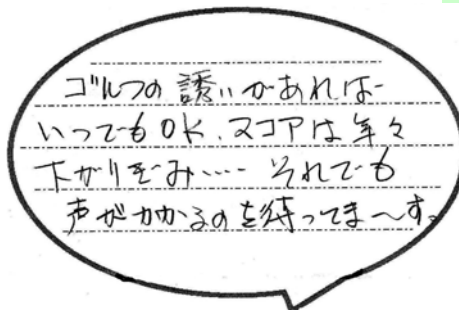 ゴルフの誘いがあれば
いつでもOK、スコアは年々
下がりぎみ‥‥それでも
声がかかるのを待ってま〜す。